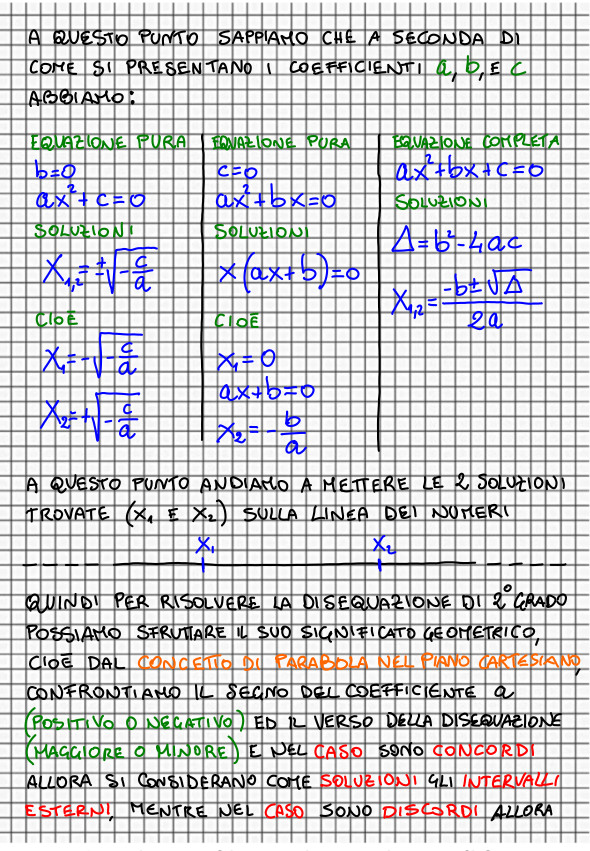 A QUESTO PUNTO SAPPIAMO CHE A SECONDA DI
COME SI PRESENTANO I COEFFICIENTI a, b, E c
ABBIAMO:
EQUAZIONE PURA
b=0
ax²+c=0
SOLUZIONI
X₁,₂=±√-c/a
CIOÈ
X₁=-√-c/a
X₂=+√-c/a
EQUAZIONE PURA
c=0
ax²+bx=0
SOLUZIONI
x(ax+b)=0
CIOÈ
x₁=0
ax+b=0
x₂=-b/a
EQUAZIONE COMPLETA
ax²+bx+c=0
SOLUZIONI
Δ=b²-4ac
X₁,₂=-b±√Δ/2a
A QUESTO PUNTO ANDIAMO A METTERE LE 2 SOLUZIONI
TROVATE (X₁ E X₂) SULLA LINEA DEI NUMERI
X₁ X₂
QUINDI PER RISOLVERE LA DISEQUAZIONE DI 2° GRADO
POSSIAMO SFRUTTARE IL SUO SIGNIFICATO GEOMETRICO,
CIOÈ DAL CONCETTO DI PARABOLA NEL PIANO CARTESIANO,
CONFRONTIAMO IL SEGNO DEL COEFFICIENTE a
(POSITIVO O NEGATIVO) ED IL VERSO DELLA DISEQUAZIONE
(MAGGIORE O MINORE) E NEL CASO SONO CONCORDI
ALLORA SI CONSIDERANO COME SOLUZIONI GLI INTERVALLI
ESTERNI, MENTRE NEL CASO SONO DISCORDI ALLORA